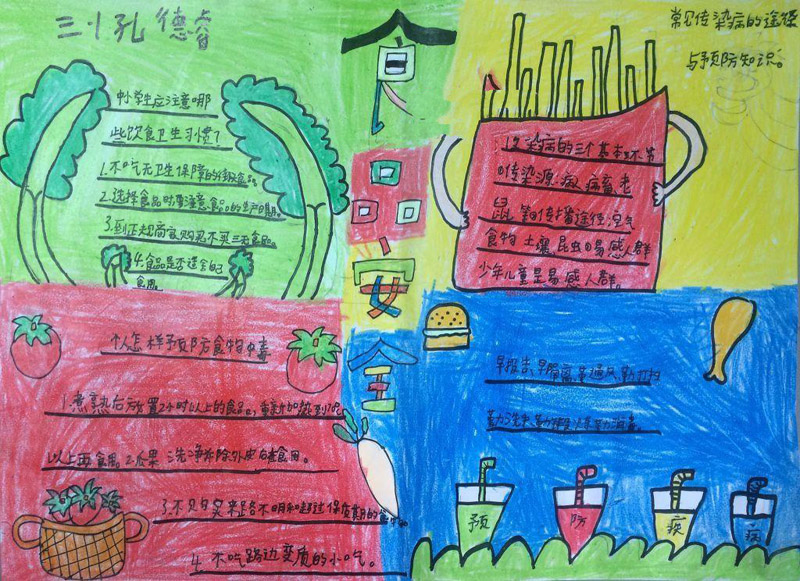 三小孔德睿
食品安全
常见传染病的途径
与预防知识。
中小学生应注意哪
些饮食卫生习惯？
1.不吃无卫生保障的街头食品。
2.选择食品时要注意食品的生产日期。
3.到正规商家购买不买三无食品。
4.食品是否适合自己
食用。
传染病的三个基本环节
传染源:病 病畜 老
鼠 等 传播途径:空气
食物 土壤 昆虫 易感人群
少年儿童是易感人群。
个人怎样预防食物中毒
1.煮熟后放置2小时以上的食品,重新加热到70
以上再食用。2.瓜果 洗净 除外皮 食用。
3.不 来路不明和超过保质期的食
4.不吃路边变质的小吃。
早报告,早隔离,常通风,勤打扫
勤洗手
预
防
疾
病